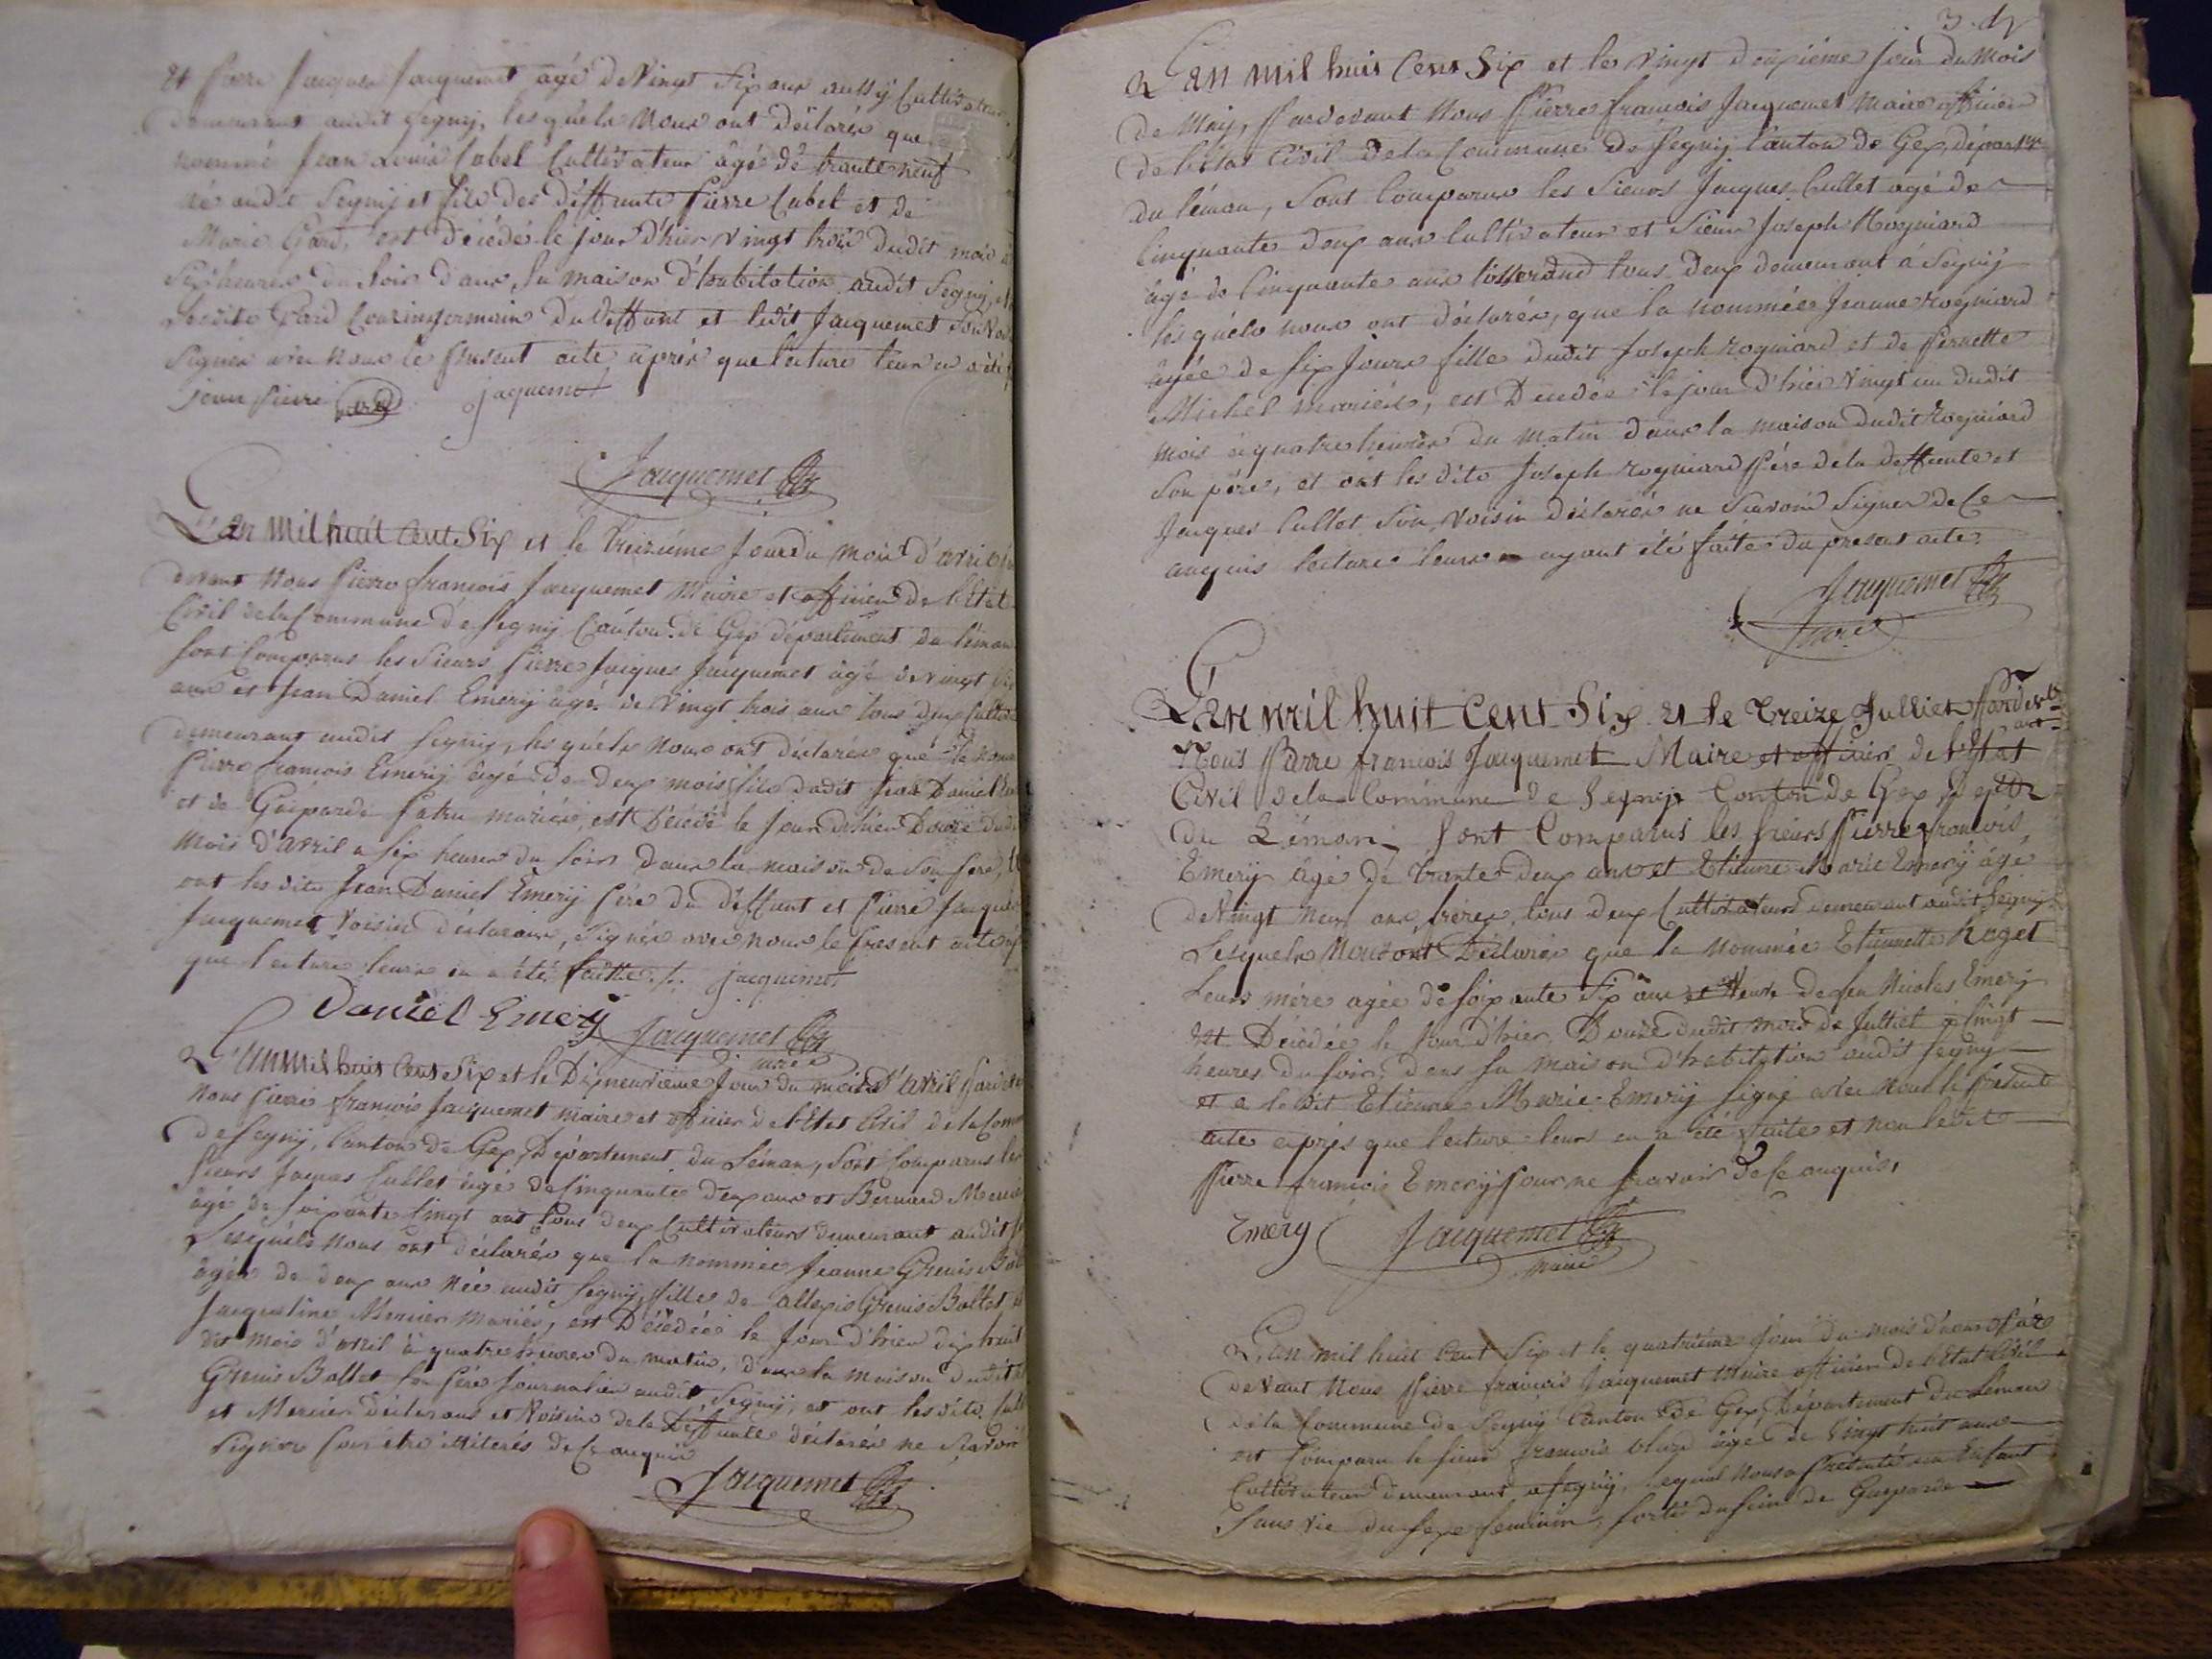 et Pierre Jacques Jacquemet agé de Vingt Six ans aussy Cultivateur
demeurant audit Segny, lesquels Nous ont déclarés que
nommé Jean Louis Cabet Cultivateur âgé de trante neuf
né audit Segnij et fils des deffunts Pierre Cabet et de
Marie Gard, est décédé le jour d'hier Vingt trois dudit mois à
Six heures du soir dans sa maison d'habitation audit Segnij, et
Lesdits Gard Couzin germain du deffunt et ledit Jacquemet Son Voi
Signés avec nous le present acte après que lecture leur en a été f
jean pierre gard jaquemet
Jacquemet
L'an mil huit Cent Six et le treizième Jour du mois d'avril
devant Nous Pierre françois Jacquemet Maire et officier de l'Etat
Civil de la Commune de Segnij Canton de Gex département du léman
sont Comparus les Sieurs Pierre Jacques Jacquemet âgé de vingt Six
ans et Jean Daniel Emerij âgé de Vingt trois ans tous deux Cultiv
demeurant audit Segnij, lesquels Nous ont déclarés que le nom
Pierre françois Emerij âgé de deux mois fils dudit Jean Daniel Em
et de Gasparde Patru mariés, est décédé le Jour d'hier Douze dud
mois d'avril a six heures du soir dans la maison de Son Père,
ont lesdits Jean Daniel Emerij Père du deffunt et Pierre Jacques
Jacquemet Voisin déclarans, Signés avec nous le present acte ap
que lecture leurs en a été faitte ./. jaquemet
Daniel Emery Jacquemet
maire
L'an mil huit Cent Six et le Dixneuvième Jour du mois d'avril Pardev
Nous Pierre françois Jacquemet maire et officier de l'Etat Civil de la Com
de Segnij, Canton de Gex, Département du Léman, Sont Comparus les
Sieurs Jacques Cullet âgé de Cinquante deux ans et Bernard Mercier
âgé de soixante Cingt ans tous deux Cultivateurs demeurant audit S
Lesquels nous ont déclarés que la nommée Jeanne Grenis Ballet
âgée de deux ans Née audit Segnij, fille de allexis Grenis Ballet et
Jacqueline Mercier mariés, est Décédée le Jour d'hier dix huit
dit mois d'avril à quatre heures du matin, dans la maison dudit
Grenis Ballet son Père Journalier audit Segnij, et ont lesdits Cull
et Mercier déclarans et Voisins de la Deffunte déclarés ne Savoir
Signer pour être illiterés de ce anquis
Jacquemet
3. d
L'an mil huit Cent Six et le Vingt deuxième jour du Mois
de Maij, Pardevant Nous Pierre françois Jacquemet Maire officier
de l'Etat Civil de la Commune de Segnij Canton de Gex, départ
du léman, Sont Comparus les Sieurs Jacques Cullet agé de
Cinquante deux ans Cultivateur et Sieur Joseph Rogniard
âgé de Cinquante ans tisserand tous deux demeurant à Segnij
lesquels nous ont déclarés, que la nommée Jeanne Rogniard
âgée de Six Jours fille dudit Joseph Rogniard et de Pernette
Michel mariés, est Décédée le jour d'hier Vingt un dudit
mois à quatre heures du matin dans la maison dudit Rogniard
Son père, et ont lesdits Joseph Rogniard Père de la deffunte et
Jacques Cullet Son Voisin déclarés ne Savoir Signer de Ce
anquis lecture leurs ayant été faite du present acte.
Jacquemet
maire
L'an mil huit Cent Six et le Treize Julliet Pardev
ant
Nous Pierre françois Jacquemet Maire et officier de l'Etat
Civil de la Commune de Segnij Canton de Gex
du Léman, Sont Comparus les sieurs Pierre françois
Emerij âgé de trante deux ans et Etienne Marie Emerij âgé
de Vingt neuf ans, frères, tous deux Cultivateurs demeurant audit Segnij
Lesquels Nous ont Déclarés que la nommée Etiennette Roget
Leurs mére agée de soixante Six ans et Veuve de feu Nicolas Emerij
est Décédée le Jour d'hier Douze dudit mois de Julliet à Cingt
heures du soir, dans sa maison d'habitation audit Segnij
et a ledit Etienne Marie Emerij signé avec nous le présent
acte après que lecture leurs en a été faite et non ledit
Pierre françois Emerij pour ne scavoir de ce anquis,
Emery Jacquemet
maire
L'an mil huit Cent Six et le quatrième jour du mois d'aoust Par
devant Nous Pierre françois Jacquemet Maire officier de l'Etat Civil
de la Commune de Segnij Canton de Gex, Département du Léman
est Comparu le sieur françois agé de Vingt huit ans
Cultivateur demeurant a Segnij, lequel Nous a présenté un Enfant
Sans vie du Sexe feminin, sorti du sein de Gasparde